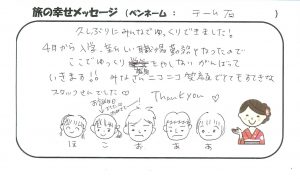 旅の幸せメッセージ (ペンネーム : チーム石 )
久しぶりにみんなでゆっくりできました!
4月から入学、新しい職場勤務となったので
ここでゆっくり をし がんばって
いきます!! みなさんニコニコ笑顔でとてもすてきな
スタッフさんでした♡
Thank you ♡
ほ こ お あ あ